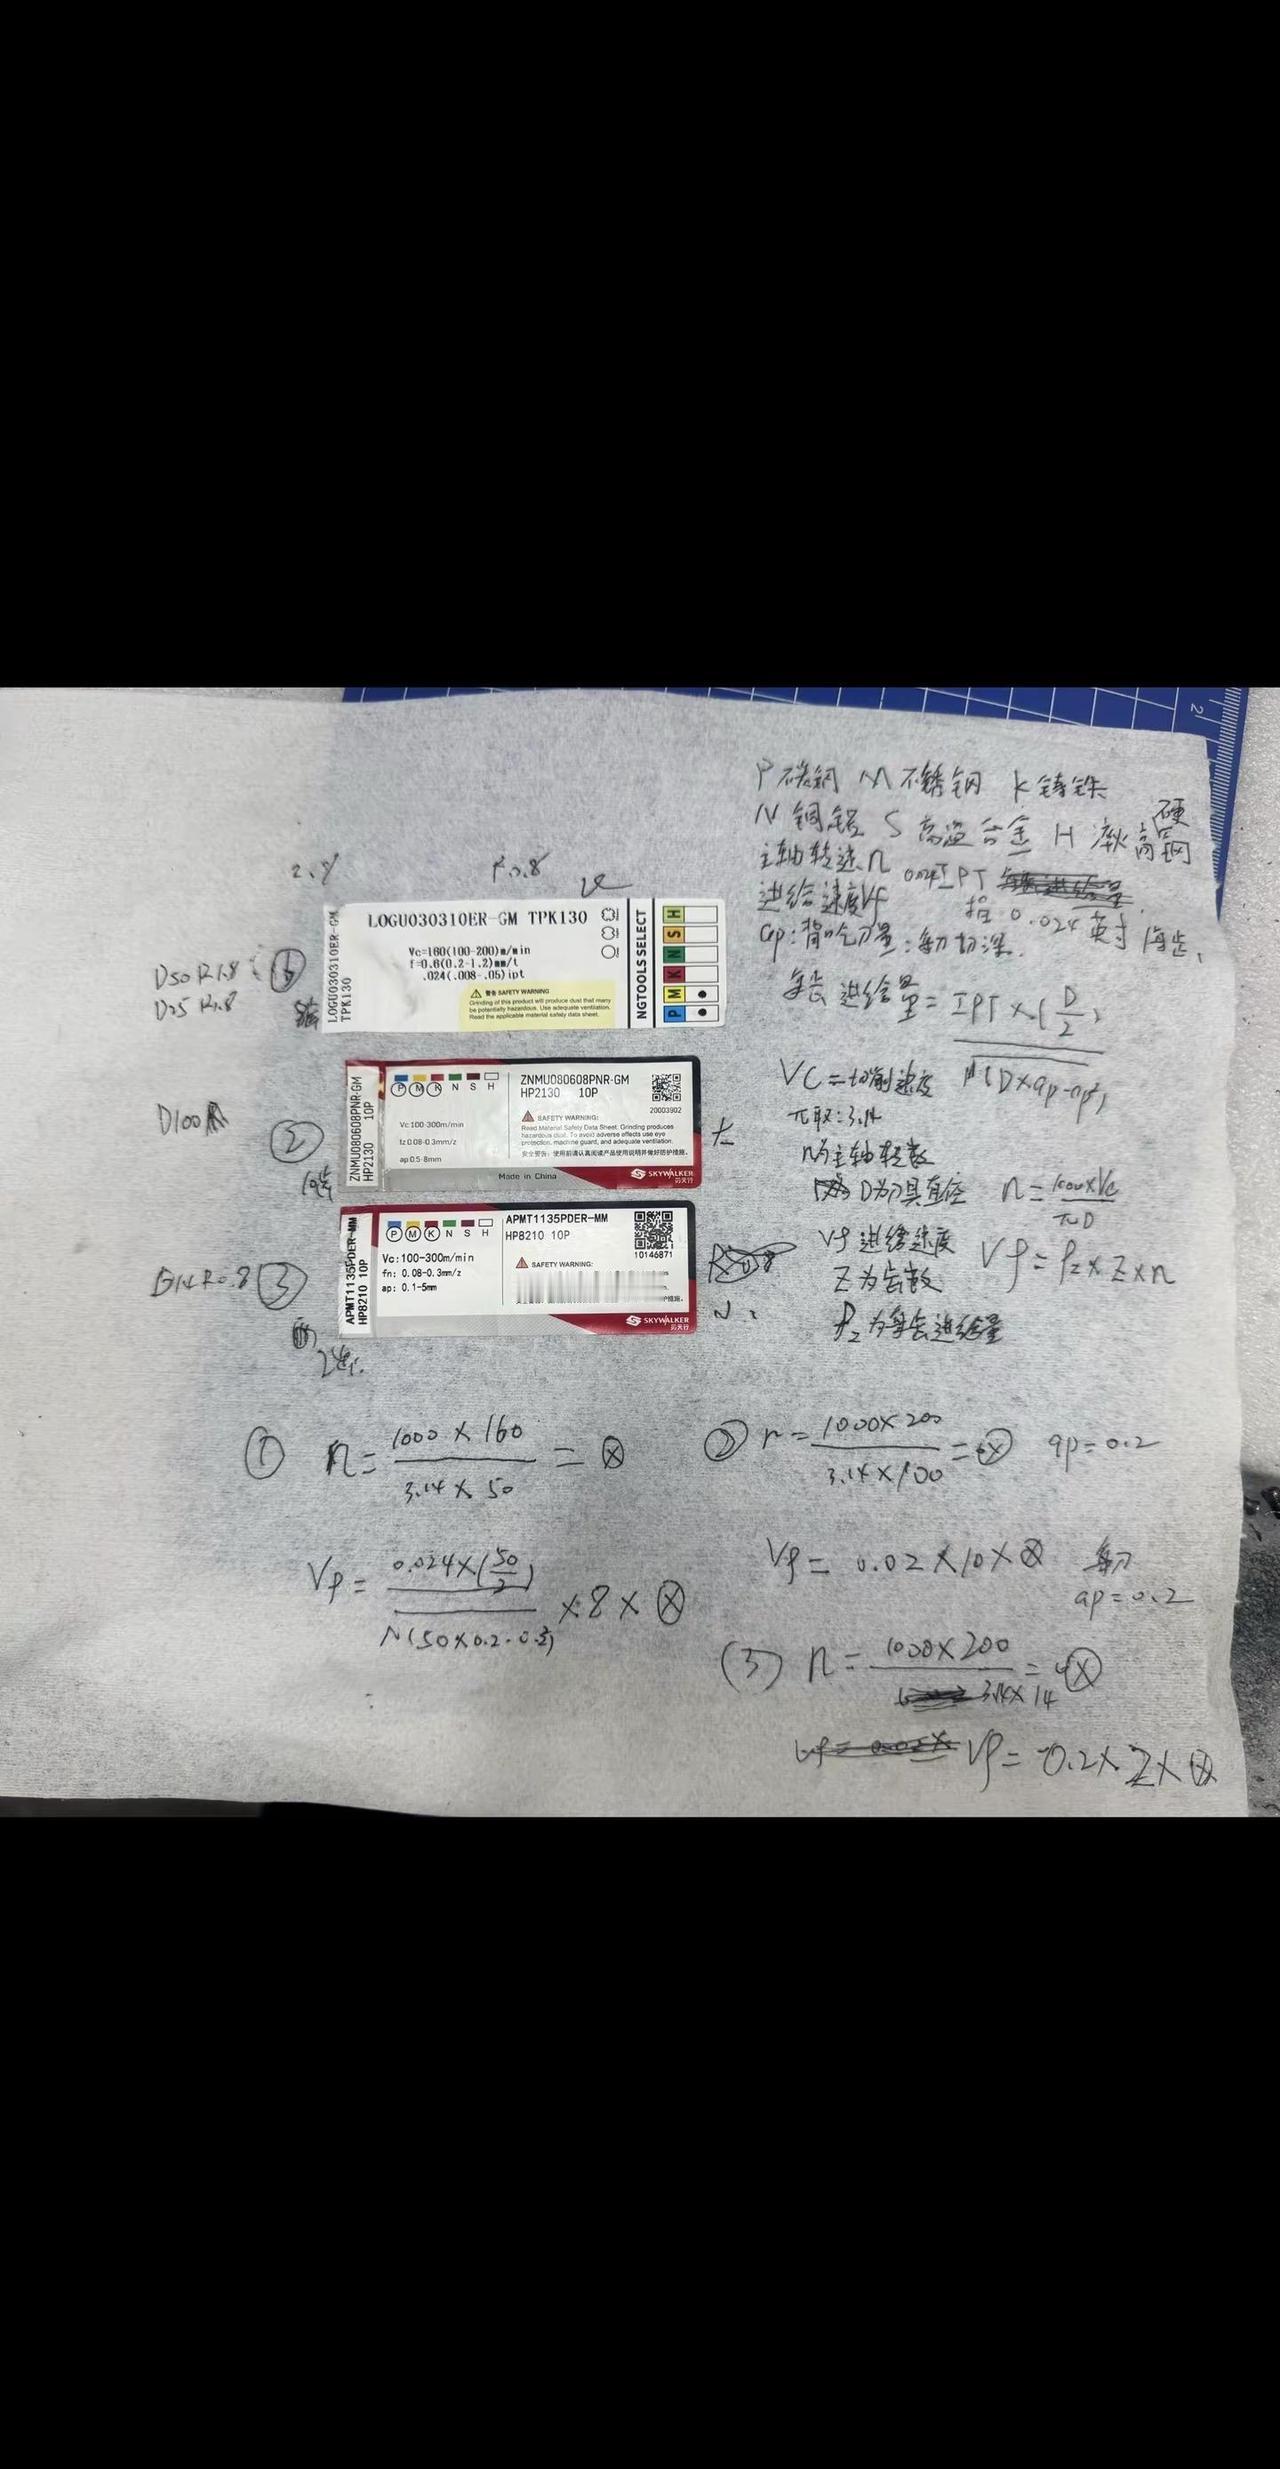 P 碳钢 M 不锈钢 K 铸铁
N 铜铝 S 高温合金 H 淬火高硬钢
主轴转速n 0.024IPT
进给速度Vf 指0.024英寸每齿,
ap:背吃刀量:每刀切深.
每齿进给量=IPT×(D/2)
√(D×ap-ap²)
VC=切削速度
π取:3.14
n为主轴转数
D为刀具直径 n=1000×Vc/πD
Vf 进给速度
Z为齿数 Vf=fz×Z×n
fz为每齿进给量
D50 R1.8
D25 R1.8
①
8齿
LOGU030310ER-GM
TPK130
LOGU030310ER-GM TPK130
Vc=160(100-200)m/min
f=0.6(0.2-1.2)mm/t
.024(.008-.05)ipt
警告 SAFETY WARNING
Grinding of this product will produce dust that many
be potentially hazardous. Use adequate ventilation.
Read the applicable material safety data sheet.
NGTOOLS SELECT
H
S
N
K
M
P
D100
②
10齿
ZNMU080608PNR-GM
HP2130 10P
P M K N S H
Vc:100-300m/min
fz:0.08-0.3mm/z
ap:0.5-8mm
ZNMU080608PNR-GM
HP2130 10P
20003902
SAFETY WARNING:
Read Material Safety Data Sheet. Grinding produces
hazardous dust. To avoid adverse effects use eye
protection, machine guard, and adequate ventilation.
安全警告:使用前请认真阅读产品使用说明并做好防护措施。
Made in China
SKYWALKER
刃天行
D14 R0.8 ③
2齿.
APMT1135PDER-MM
HP8210 10P
P M K N S H
Vc:100-300m/min
fn: 0.08-0.3mm/z
ap: 0.1-5mm
APMT1135PDER-MM
HP8210 10P
10146871
SAFETY WARNING:
护措施。
SKYWALKER
刃天行
① n=1000×160/3.14×50=⊗
Vf=0.024×(50/2)/√(50×0.2-0.2²)×8×⊗
② n=1000×200/3.14×100=⊗ ap=0.2
Vf=0.02×10×⊗ 每刀
ap=0.2
(3) n=1000×200/3.14×14=⊗
Vf=0.2×2×⊗